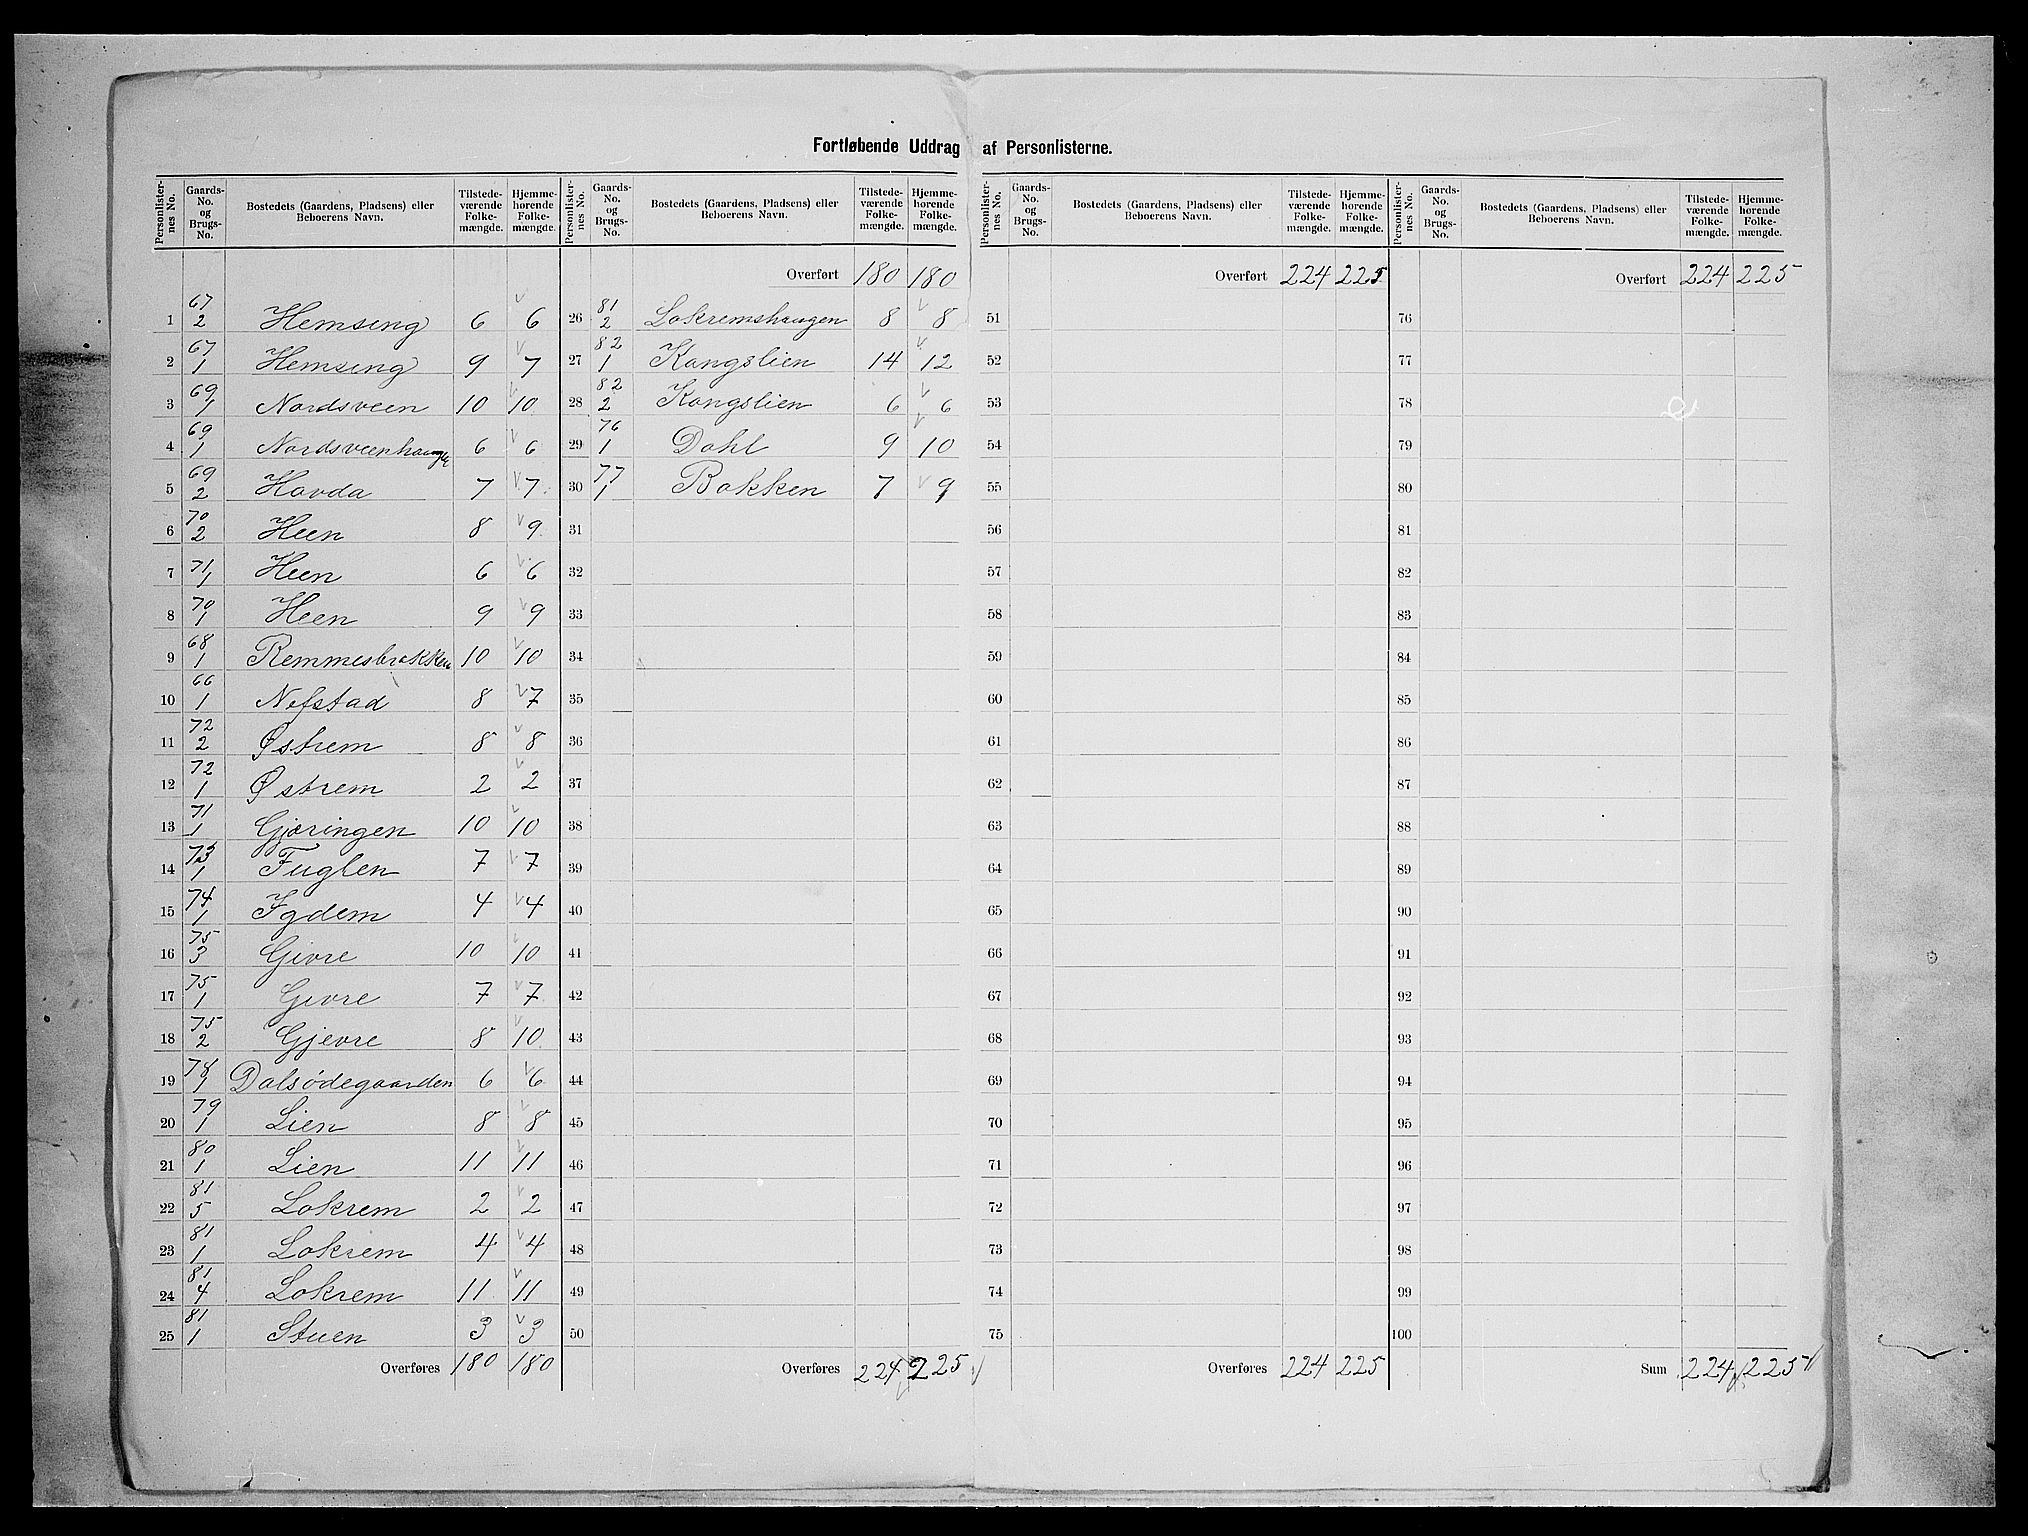 Fortløbende Uddrag af Personlisterne.
Personlister-nes No. | Gaards-No. og Brugs-No. | Bostedets (Gaardens, Pladsens) eller Beboerens Navn. | Tilstede-værende Folke-mængde. | Hjemme-hørende Folke-mængde.
1 67/2 Hemsing 6 6
2 67/1 Hemsing 9 7
3 69/1 Nordsveen 10 10
4 69/1 Nordsveenhaugen 6 6
5 69/2 Hovda 7 7
6 70/2 Heen 8 9
7 71/1 Heen 6 6
8 70/1 Heen 9 9
9 68/1 Remmesbrokken 10 10
10 66/1 Nefstad 8 7
11 72/2 Østrem 8 8
12 72/1 Østrem 2 2
13 71/1 Gjøringen 10 10
14 73/1 Fuglen 7 7
15 74/1 Igdem 4 4
16 75/3 Givre 10 10
17 75/1 Givre 7 7
18 75/2 Gjevre 8 10
19 78/1 Dalsødegaarden 6 6
20 79/1 Lien 8 8
21 80/1 Lien 11 11
22 81/5 Lokrem 2 2
23 81/1 Lokrem 4 4
24 81/4 Lokrem 11 11
25 81/1 Stuen 3 3
Overføres 180 180
Personlister-nes No. | Gaards-No. og Brugs-No. | Bostedets (Gaardens, Pladsens) eller Beboerens Navn. | Tilstede-værende Folke-mængde. | Hjemme-hørende Folke-mængde.
Overført 180 180
26 81/2 Lokremshaugen 8 8
27 82/1 Kongslien 14 12
28 82/2 Kongslien 6 6
29 76/1 Dahl 9 10
30 77/1 Bakken 7 9
31
32
33
34
35
36
37
38
39
40
41
42
43
44
45
46
47
48
49
50
Overføres 224 225
Personlister-nes No. | Gaards-No. og Brugs-No. | Bostedets (Gaardens, Pladsens) eller Beboerens Navn. | Tilstede-værende Folke-mængde. | Hjemme-hørende Folke-mængde.
Overført 224 225
51
52
53
54
55
56
57
58
59
60
61
62
63
64
65
66
67
68
69
70
71
72
73
74
75
Overføres 224 225
Personlister-nes No. | Gaards-No. og Brugs-No. | Bostedets (Gaardens, Pladsens) eller Beboerens Navn. | Tilstede-værende Folke-mængde. | Hjemme-hørende Folke-mængde.
Overført 224 225
76
77
78
79
80
81
82
83
84
85
86
87
88
89
90
91
92
93
94
95
96
97
98
99
100
Sum 224 225